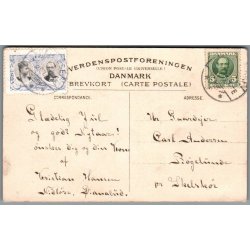 VERDENSPOSTFORENINGEN
(UNION POSTALE UNIVERSELLE)
DANMARK
BREVKORT (CARTE POSTALE)
CORRESPONDANCE.
ADRESSE.
Glædelig Jul
og godt Nytaar!
ønsker dig og din Kone
af
Kristian Hansen
Hr Gaardejer
Carl Andersen
pr Skelskør